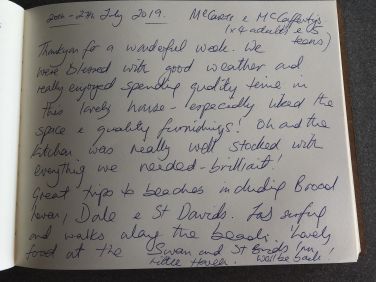 20th - 27th July 2019. McCabes & McCaffertys
(x 4 adults & 5
teens)
Thankyou for a wonderful week. We
were blessed with good weather and
really enjoyed spending quality time in
this lovely house - especially liked the
space & quality furnishings! Oh and the
kitchen was really well stocked with
everything we needed - brilliant!
Great trips to beaches including Broad
haven, Dale & St Davids. Fab surfing
and walks along the beach. Lovely
food at the Swan and St Brides Inn,
Little Haven. We'll be back!